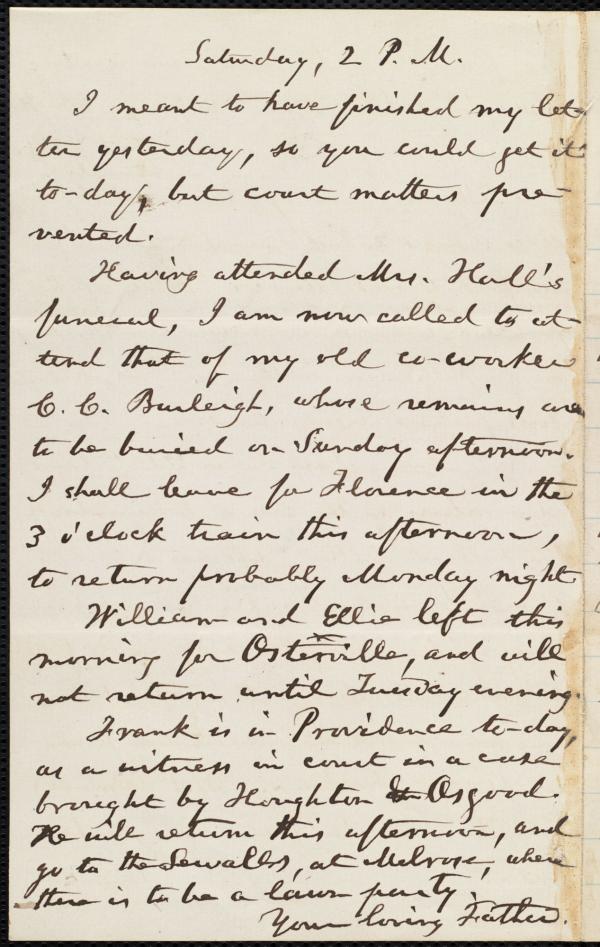 Saturday, 2 P. M.
I meant to have finished my let-
ter yesterday, so you could get it
to-day, but court matters pre-
vented.
Having attended Mrs. Hall's
funeral, I am now called to at-
tend that of my old co-worker
C. C. Burleigh, whose remains are
to be buried on Sunday afternoon.
I shall leave for Florence in the
3 o'clock train this afternoon,
to return probably Monday night.
William and Ellie left this
morning for Osterville, and will
not return until Tuesday evening.
Frank is in Providence to-day,
as a witness in court in a case
brought by Houghton & Osgood.
He will return this afternoon, and
go to the Sewalls, at Melrose, where
there is to be a lawn party.
Your loving Father.